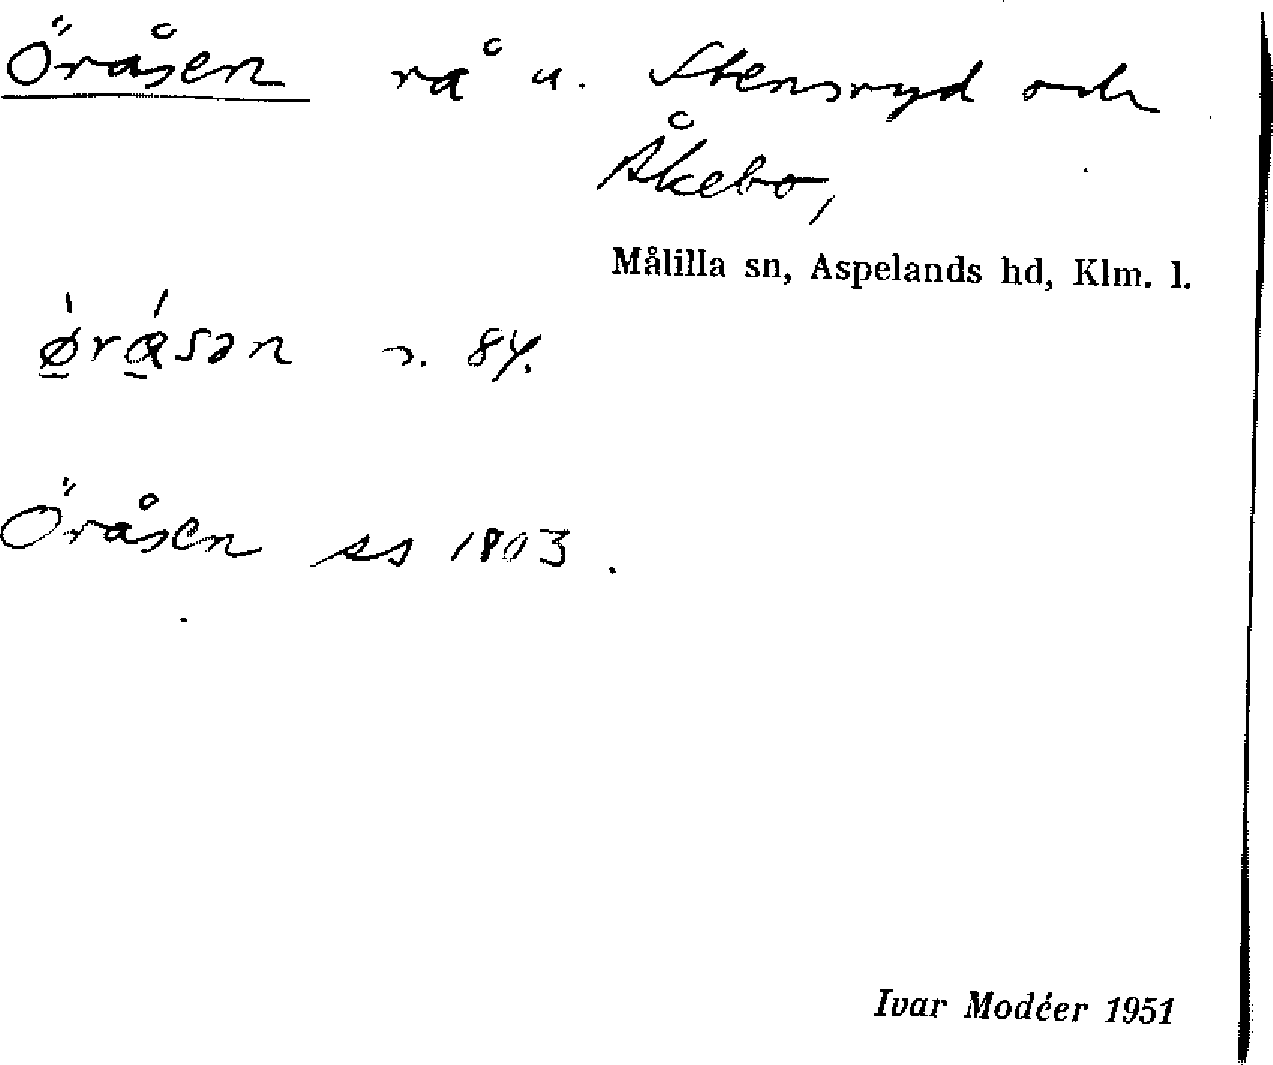 Öråsen rå u. Stensryd och
Åkebo,
Målilla sn, Aspelands hd, Klm. l.
ǿ̱rá̱sən s. 84.
Öråsen ss 1803.
Ivar Modéer 1951